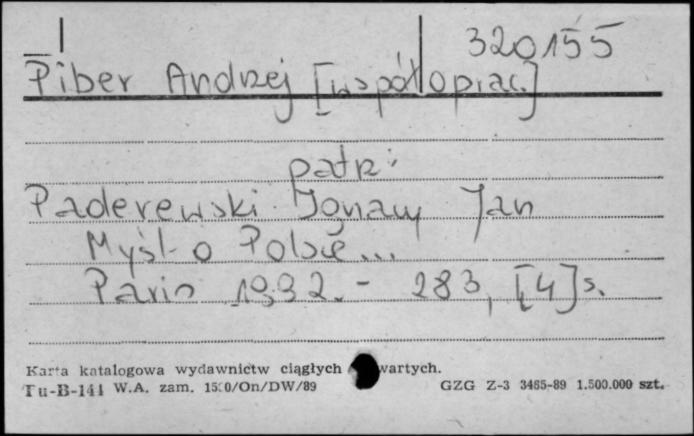 320155
Piber Andrzej [współoprac.]
patrz:
Paderewski Ignacy Jan
Myśl o Polsce...
Paris 1992. - 283, [4] s.
Karta katalogowa wydawnictw ciągłych wartych.
Tu-B-141 W.A. zam. /On/DW/89 GZG Z-3 3465-89 1.500.000 szt.